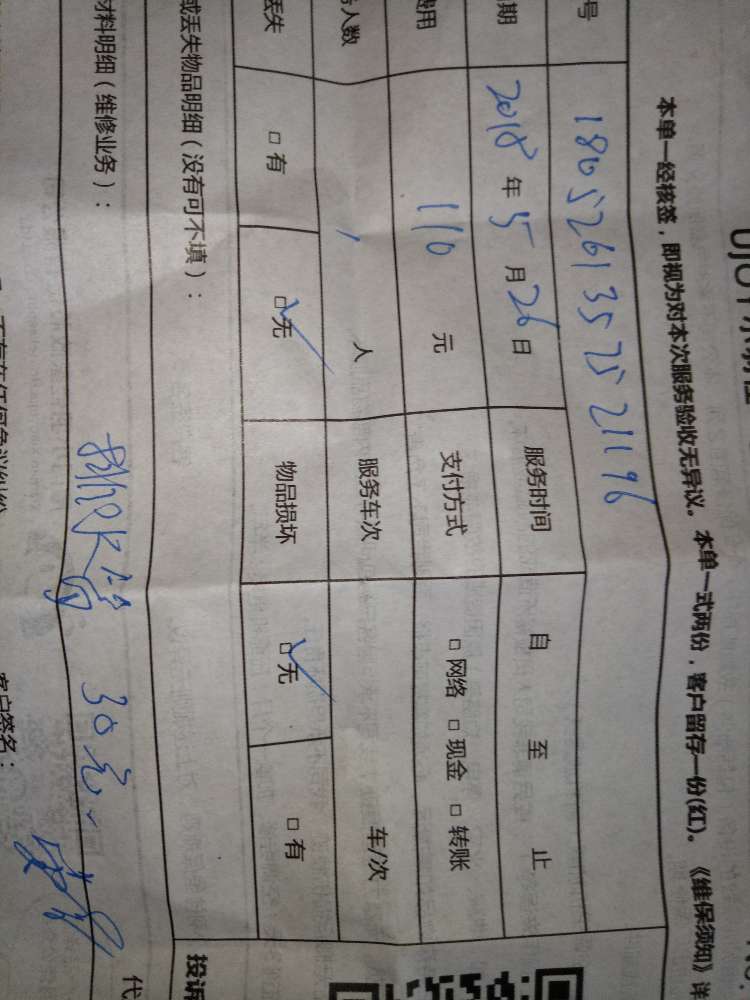 本单一经核签，即视为对本次服务验收无异议。本单一式两份，客户留存一份(红)。《维保须知》详
号 180526135252 1196
期 2018年5月26日 服务时间 自 至 止
费用 110 元 支付方式 □网络 □现金 □转账
人数 1 人 服务车次 车/次
丢失 □有 ☑无 物品损坏 ☑无 □有
或丢失物品明细（没有可不填）：
投诉
材料明细（维修业务）： 30元
代
客户签名：